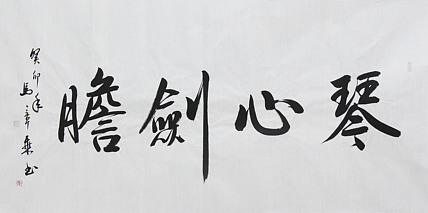 琴心劍膽
癸卯年馬章乘书